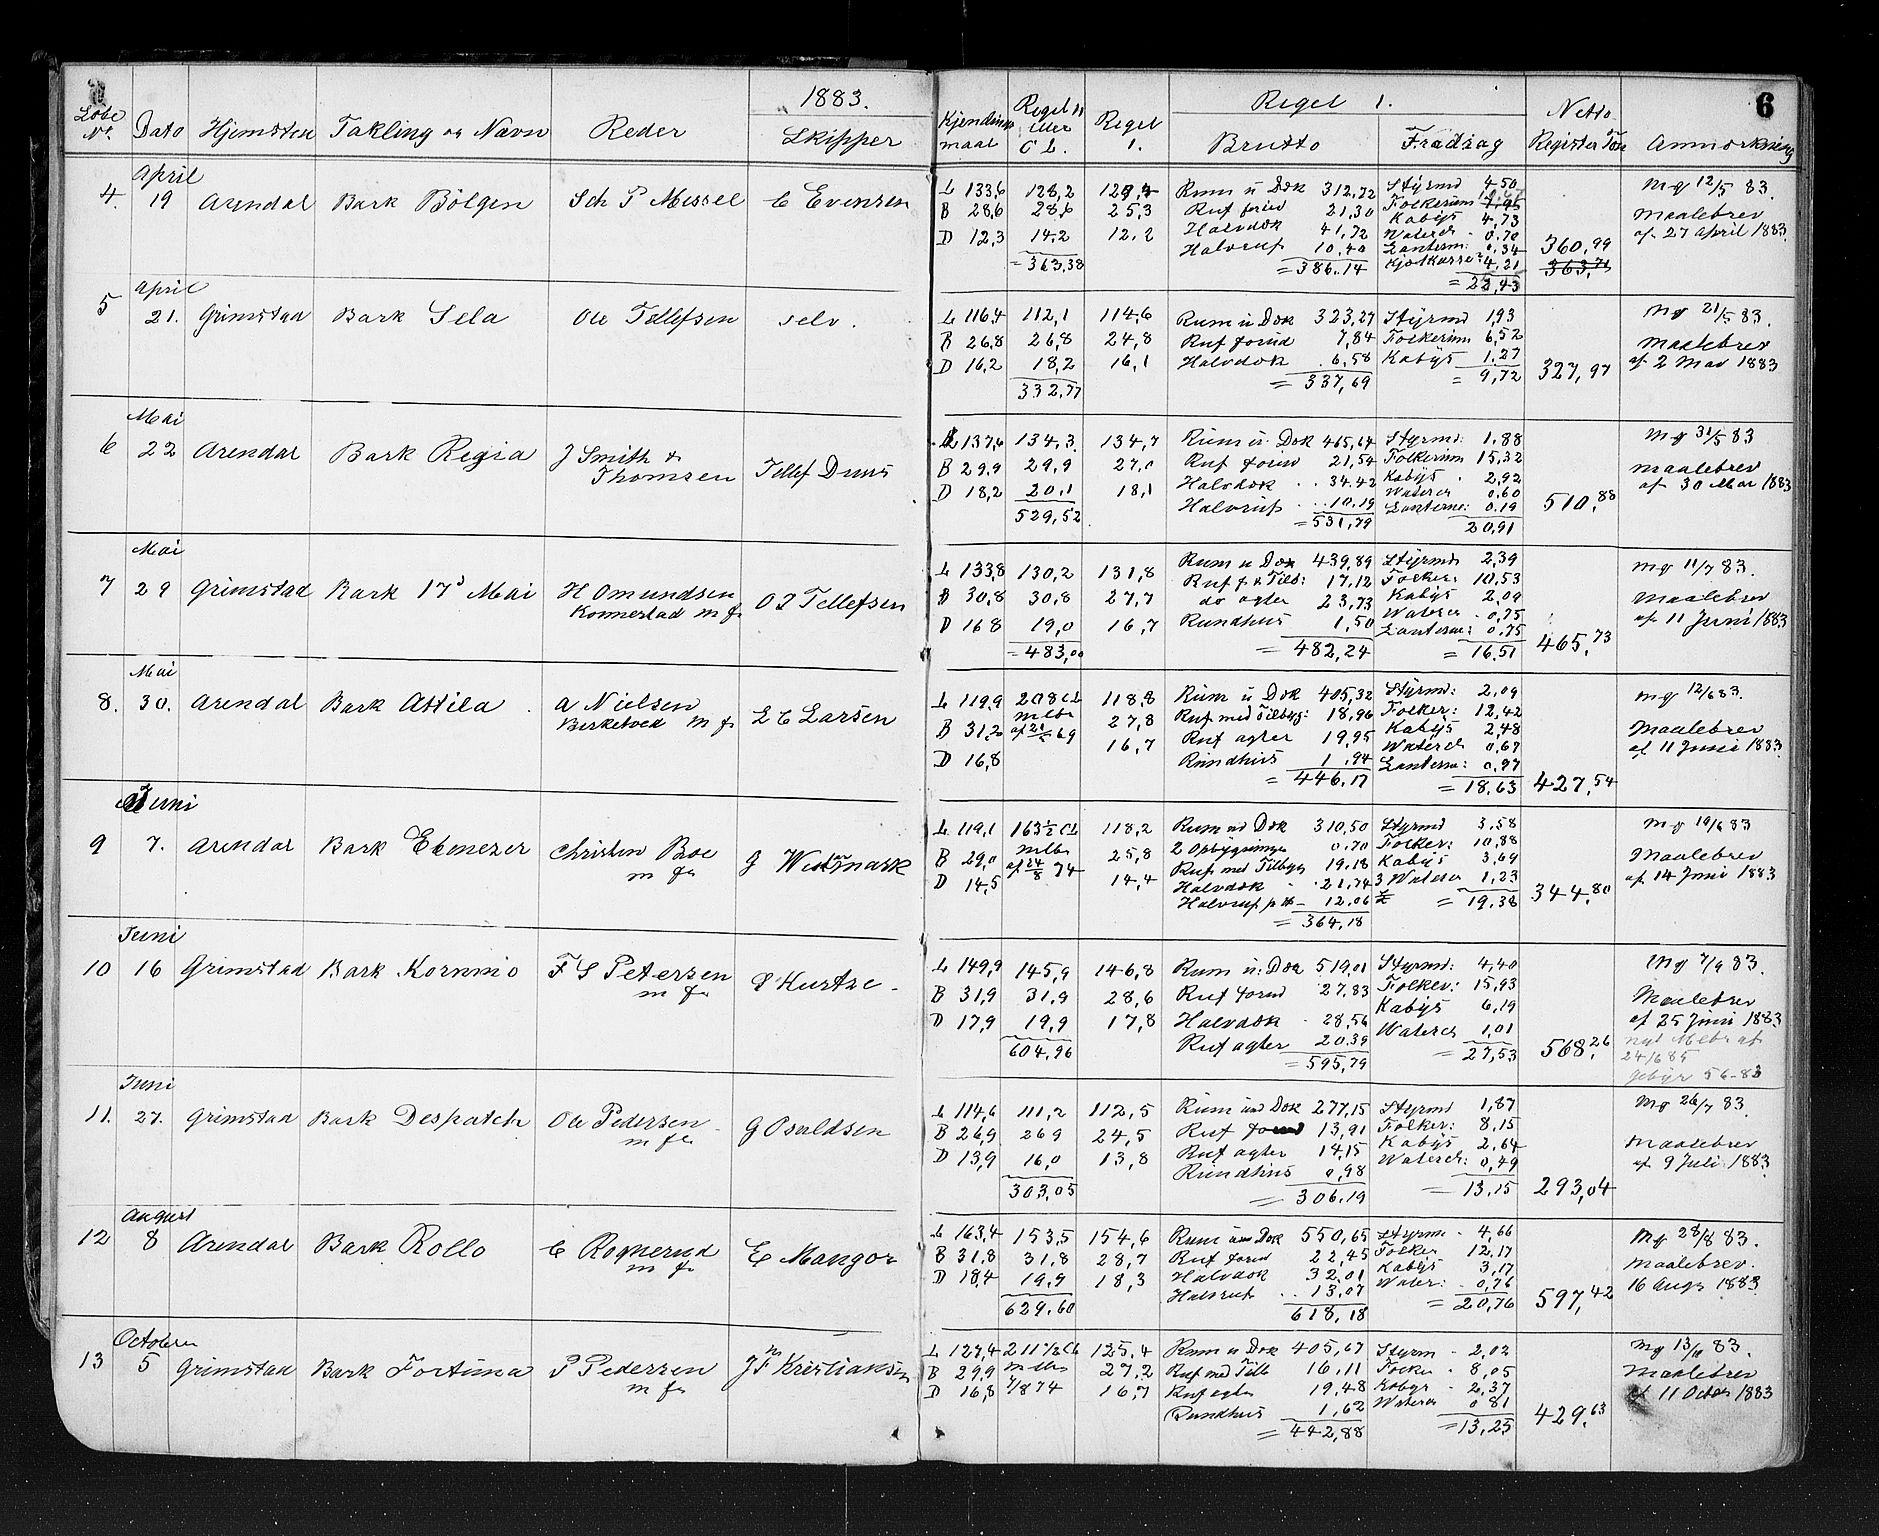 1883.
6
Löbe Nr. Dato Hjemsten Takling og Navn Reder Skipper Kjendings maal Regel II eller C L. Regel 1. Regel 1. Brutto Fradrag Netto Register Tons Anmærkning
4. April 19 Arendal Bark Bölgen Sch P Messel C Evensen
L 133,6 128,2 Rum u Dæk 312,72 Styrmd 4,50 Mg 12/5 83.
B 28,6 28,6 25,3 Ruf forud 21,30 Folkerum Maalebrev
D 12,3 14,2 12,2 Halvdæk 41,72 Kabÿs 4,73 af 27 April 1883.
Halvruf 10,40 Watercl 0,70 360,99
= 363,38 = 386,14 Lanterm: 0,34 363,71
4,21
= 22,43
5 April 21. Grimstad Bark Sela Ole Tellefsen selv.
L 116,4 112,1 114,6 Rum u Dæk 323,27 Styrmd 1,93 Mg 21/5 83.
B 26,8 26,8 24,8 Ruf forud 7,84 Folkerum 6,52 Maalebrev
D 16,2 18,2 16,1 Halvdæk 6,58 Kabÿs 1,27 af 2 Mai 1883
332,77 = 337,69 = 9,72 327,97
6 Mai 22 Arendal Bark Regia J Smith & Thomsen Tellef Duus
L 137,6 134,3. 134,7 Rum u. Dæk 465,64 Styrmd: 1,88 Mg 31/5 83
B 29,9 29,9 27,0 Ruf forud 21,54 Folkerum 15,32 Maalebrev
D 18,2 20,1 18,1 Halvdæk 34,42 Kabÿs 2,92 af 30 Mai 1883
Halvruf 10,19 Watercl 0,60
529,52 = 531,79 Lanterne: 0,19 510,88
20,91
7 Mai 29 Grimstad Bark 17d Mai H Omundsen Konnestad m fr O T Tellefsen
L 133,8 130,2 131,8 Rum u Dæk 439,89 Styrmd 2,39 Mg 11/7 83.
B 30,8 30,8 27,7 Ruf f & Tilb: 17,12 Folker: 10,53 Maalebrev
do agter 23,73 Kabÿs 2,09
D 16 8 19,0 16,7 Rundhus 1,50 Watercl 0,75 af 11 Juni 1883
= 483,00 = 482,24 Lanterne: 0,75 465,73
= 16,51
8. Mai 30. Arendal Bark Attila A Nielsen Birketved m fr L C Larsen
L 119,9 208 CL 118,8 Rum u Dæk 405,32 Styrmd: 2,09 Mg 12/6 83.
mlbr Ruf med Tilbyg: 18,96 Folker: 12,42
B 31,2 69 27,8 Ruf agter 19,95 Kabÿs 2,48 Maalebrev
D 16,8 16,7 Rundhus 1,94 Watercl 0,67 af 11 Juni 1883
= 446,17 Lanterne: 0,97
= 18,63 427,54
9 Juni 7. Arendal Bark Ebenezer Christen Boe m fr G Westmark
L 119,1 163½ CL 118,2 Rum ud Dæk 310,50 Styrmd 3,58 Mg 19/6 83
mlbr 2 Opbygninge 0,70 Folker: 10,88
B 29,0 af 24/8 74 25,8 Ruf med Tilbyg 19,18 Kabÿs 3,69 Maalebrev
D 14,5 14,4 Halvdæk 21,74 3 Watercl 1,23 af 14 Juni 1883
12,06 = 19,38 344,80
= 364,18
10 Juni 16 Grimstad Bark Kornmo F S Petersen m fr Kurtze
L 149,9 145,9 146,8 Rum u: Dæk 519,01 Styrmd: 4,40 Mg 7/9 83.
B 31,9 31,9 28,6 Ruf forud 27,83 Folker: 15,93 Maalebrev
D 17,9 19,9 17,8 Halvdæk 28,56 Kabÿs 6,19 af 25 Juni 1883
Ruf agter 20,39 Watercl 1,01 nyt Mlbr af
604,96 = 595,79 = 27,53 568,26 24/6 85
Gebyr 56-83
11. Juni 27. Grimstad Bark Despatch Ole Pedersen m fl G Osuldsen
L 114,6 111,2 112,5 Rum und Dæk 277,15 Styrmd 1,87 Mg 26/7 83.
B 26,9 26 9 24,5 Ruf forud 13,91 Folker: 8,15
D 13,9 16,0 13,8 Ruf agter 14,15 Kabÿs 2,64 Maalebrev
Rundhus 0,98 Watercl: 0,49 af 9 Juli 1883
303,05 = 306,19 = 13,15 293,04
12 August 8 Arendal Bark Rollo m fr E Mangor
L 163,4 153,5 154,6 Rum und Dæk 550,65 Styrm 4,66 Mg 28/8 83.
B 31,8 31,8 28,7 Ruf forud 22,45 Folker 12,17 Maalebrev.
D 18,4 19,9 18,3 Halvdæk 32,01 Kabÿs 3,17 16 Aug 1883
Halvruf 13,07 Water: 0,76
629,60 618,18 = 20,76 597,42
13 Octobern 5 Grimstad Bark Fortuna P Pedersen m fr Kristiansen
L 127,4 211½ CL 125,4 Rum u Dæk 405,67 Styrm 2,02 Mg 13/10 83.
B 29,9 mlbr 27,2 Ruf med Tilb 16,11 Folker 8,05 Maalebrev
D 16,8 7/8 74 16,7 Ruf agter 19,48 Kabys 2,37 af 11 Octbr 1883
Rundhus 1,62 Watercl 0 81
= 442,88 = 13,25 429,63